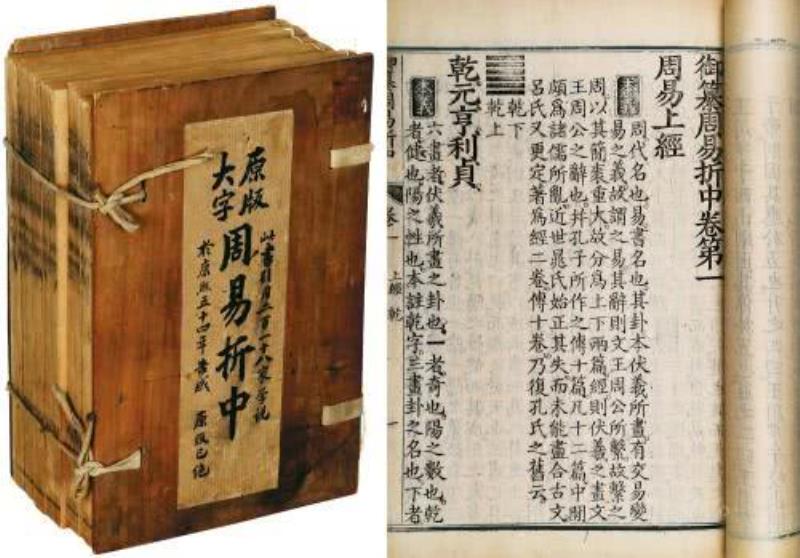 原版
大字
此書引用二百一十八家学說
周易折中
於康熙五十四年告成 原版已绝
御纂周易折中卷第一
周易上經
本義 周代名也。易書名也。其卦本伏羲所畫。有交易變
易之義。故謂之易。其辭則文王周公所繫。故繫之
周。以其簡袠重大。故分爲上下兩篇。經則伏羲之畫。文
王周公之辭也。并孔子所作之傳十篇。凡十二篇。中閒
頗爲諸儒所亂。近世晁氏始正其失。而未能盡合古文。
呂氏又更定著爲經二卷。傳十卷。乃復孔氏之舊云。
乾下
乾上
乾元亨利貞。
本義 六畫者。伏羲所畫之卦也。一者。奇也。陽之數也。乾
者。健也。陽之性也。本註乾字。三畫卦之名也。下者
周易折中 卷一 上經 乾 一